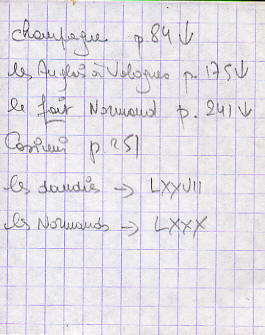 champagne p 84 ↓
les Anglais à Valognes p. 175 ↓
le fait Normand p. 241 ↓
p. 251
les dandies → LXXVII
les Normands → LXXX